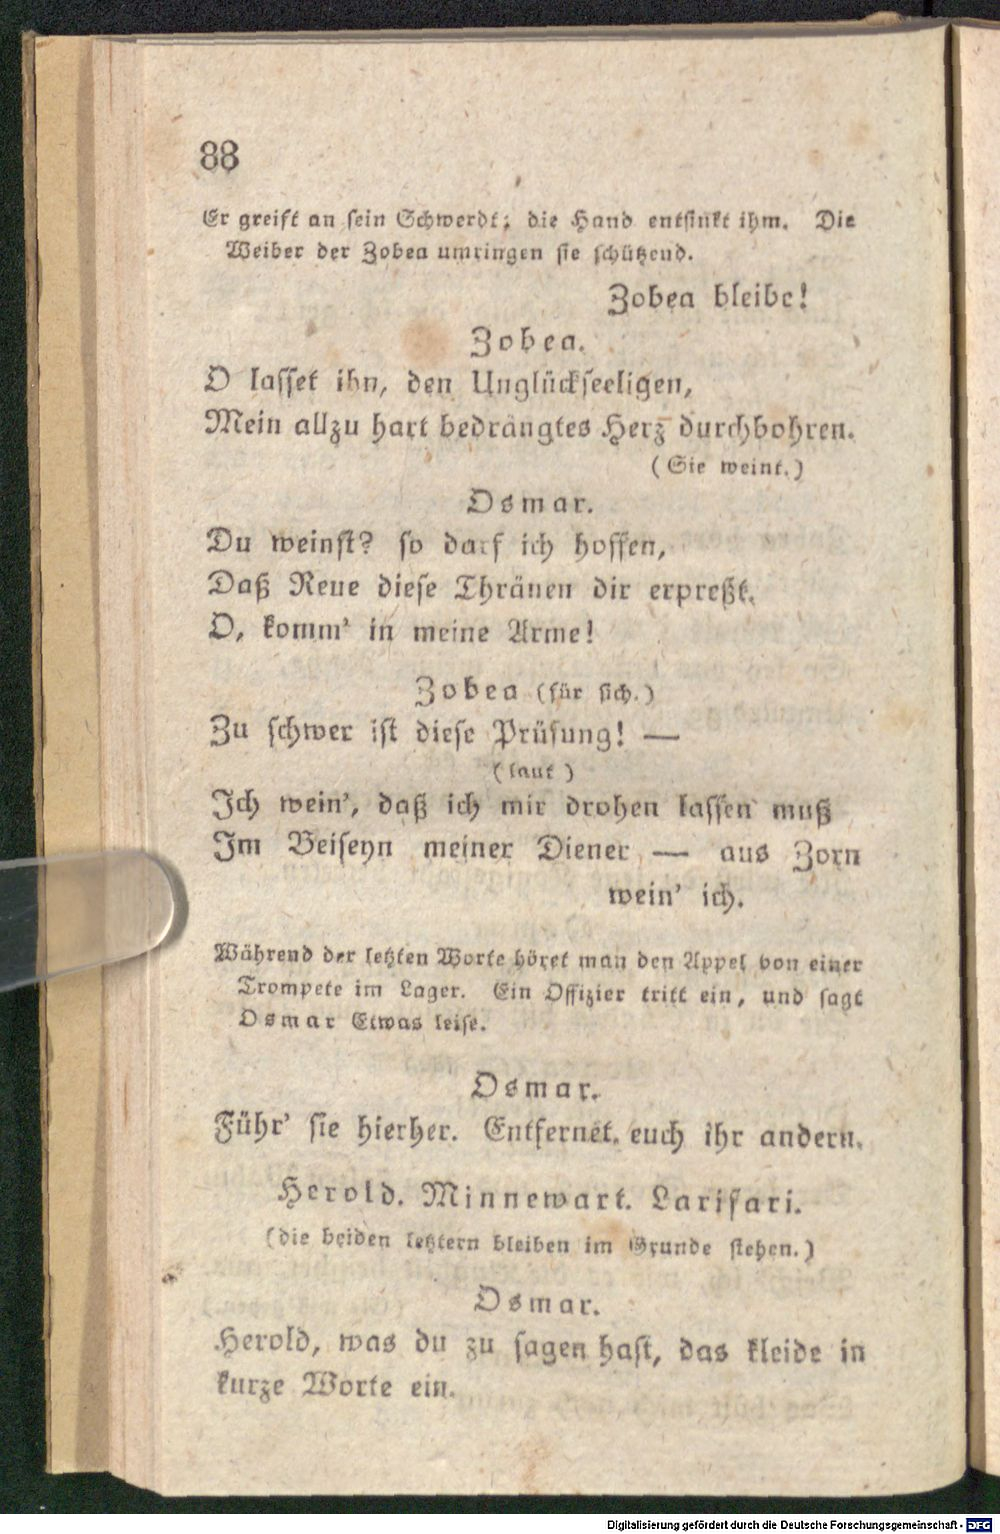 88
Er greift an sein Schwerdt; die Hand entsinkt ihm. Die
Weiber der Zobea umringen sie schützend.
Zobea bleibe!
Zobea.
O lasset ihn, den Unglückseeligen,
Mein allzu hart bedrängtes Herz durchbohren.
(Sie weint.)
Osmar.
Du weinst? so darf ich hoffen,
Daß Reue diese Thränen dir erpreßt.
O, komm' in meine Arme!
Zobea (für sich.)
Zu schwer ist diese Prüfung! —
(laut)
Ich wein', daß ich mir drohen lassen muß
Im Beiseyn meiner Diener — aus Zorn
wein' ich.
Während der letzten Worte höret man den Appel von einer
Trompete im Lager. Ein Offizier tritt ein, und sagt
Osmar Etwas leise.
Osmar.
Führ' sie hierher. Entfernet euch ihr andern.
Herold. Minnewart. Larifari.
(die beiden letztern bleiben im Grunde stehen.)
Osmar.
Herold, was du zu sagen hast, das kleide in
kurze Worte ein.
Digitalisierung gefördert durch die Deutsche Forschungsgemeinschaft - DFG